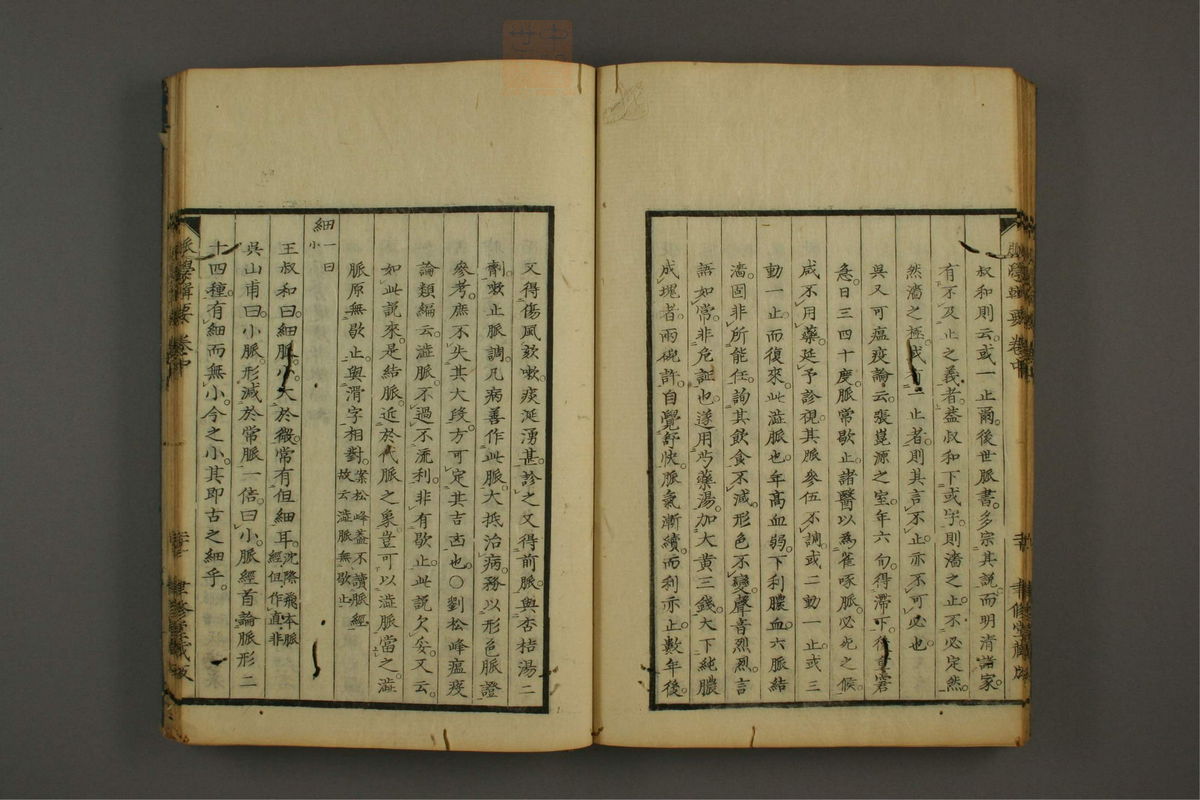 叔和則云。或一止爾。後世脈書。多宗其説。而明清諸家。
有不及止之義者。葢叔和下或字。則濇之止。不必定然。
然濇之極。或有一止者。則其言不止。亦不可必也。
呉又可瘟疫論云。張崑源之室。年六旬。得滯下。後重窘
急。日三四十度。脈常歇止。諸醫以為雀啄脈。必死之候。
咸不用藥。延予診視。其脈參伍不調。或二動一止。或三
動一止。而復來。此澁脈也。年高血弱。下利膿血。六脈結
濇。固非所能任。詢其飲食不減。形色不變。聲音烈烈。言
語如常。非危証也。遂用芍藥湯。加大黄三錢。大下純膿
成塊者。兩碗許。自覺舒快。脈氣漸續。而利亦止。數年後
又得傷風欬嗽。痰涎湧甚。診之。又得前脈。與杏桔湯二
劑。嗽止脈調。凡病善作此脈。大抵治病。務以形色脈證
參考。庶不失其大段。方可定其吉凶也。○劉松峰瘟疫
論類編云。澁脈。不過不流利。非有歇止。此説欠妥。又云。
如此説來。是結脈。近於代脈之象。豈可以澁脈當之。澁
脈原無歇止。與滑字相對。案松峰葢不讀脈經
故云澁脈無歇止
細一曰
小
王叔和曰。細脈。小大於微。常有但細耳。沈際飛本脈
經但作直非
呉山甫曰。小脈。形減於常脈一倍。曰小。脈經首論脈形二
十四種。有細而無小。今之小。其即古之細乎。
脈學輯要 卷中
聿修堂藏版
脈學輯要 卷中
聿修堂藏版